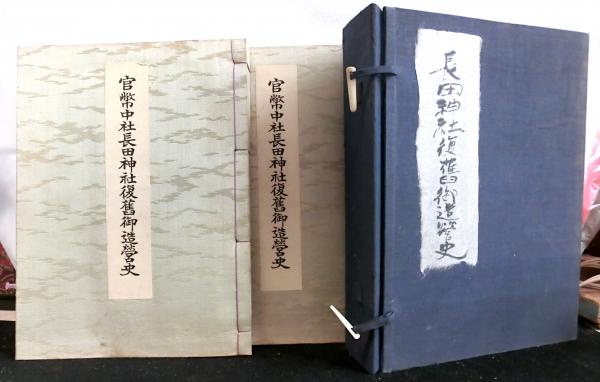 官幣中社長田神社復舊御造營史
官幣中社長田神社復舊御造營史
長田神社復舊御造營史